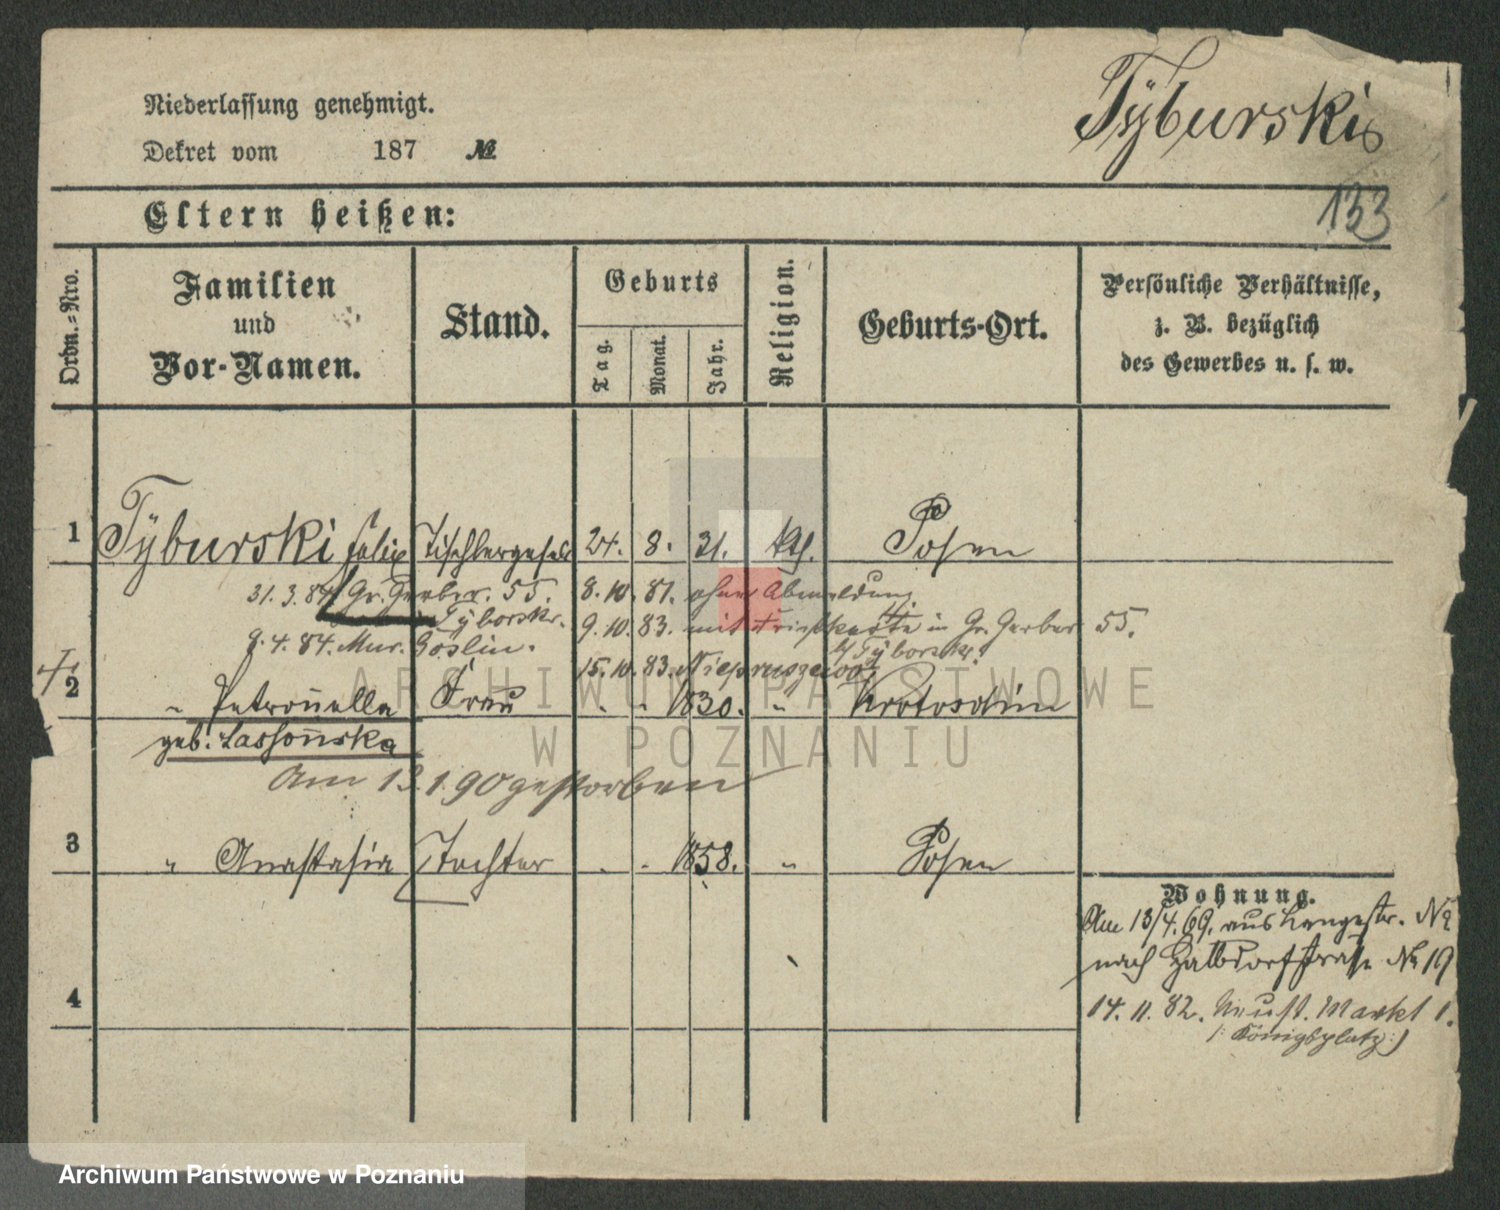 Niederlassung genehmigt.
Dekret vom 187 №
Tÿburski
133
Eltern heißen:
Ordn.-Nro.
Familien und Vor-Namen.
Stand.
Geburts
Tag.
Monat.
Jahr.
Religion.
Geburts-Ort.
Persönliche Verhältnisse,
z. B. bezüglich
des Gewerbes u. s. w.
1 Tÿburski Felix Tischlergesell 24. 8. 31. kth. Posen
31. 3. 84 Gr. Gerber. 55. 8. 10. 81. ohne Abmeldung
Tyborski. 9. 10. 83. mit in Gr. Gerber 55.
9. 4. 84. Mur. Goslin. b/ Tyborski.
15. 10. 83. Niepruszewo
2 " Petronella Frau " " 1830. " Krotoschin
geb. Lassonska
Am 13.1.90 gestorben
3 " Anastasia Tochter " " 1858. " Posen
Wohnung.
Am 13/4. 69. aus Langestr. №
nach Halbdorfstraße № 19
4
14. 11. 82. Neust. Markt 1.
/: Königsplatz :)
ARCHIWUM PAŃSTWOWE
W POZNANIU
Archiwum Państwowe w Poznaniu